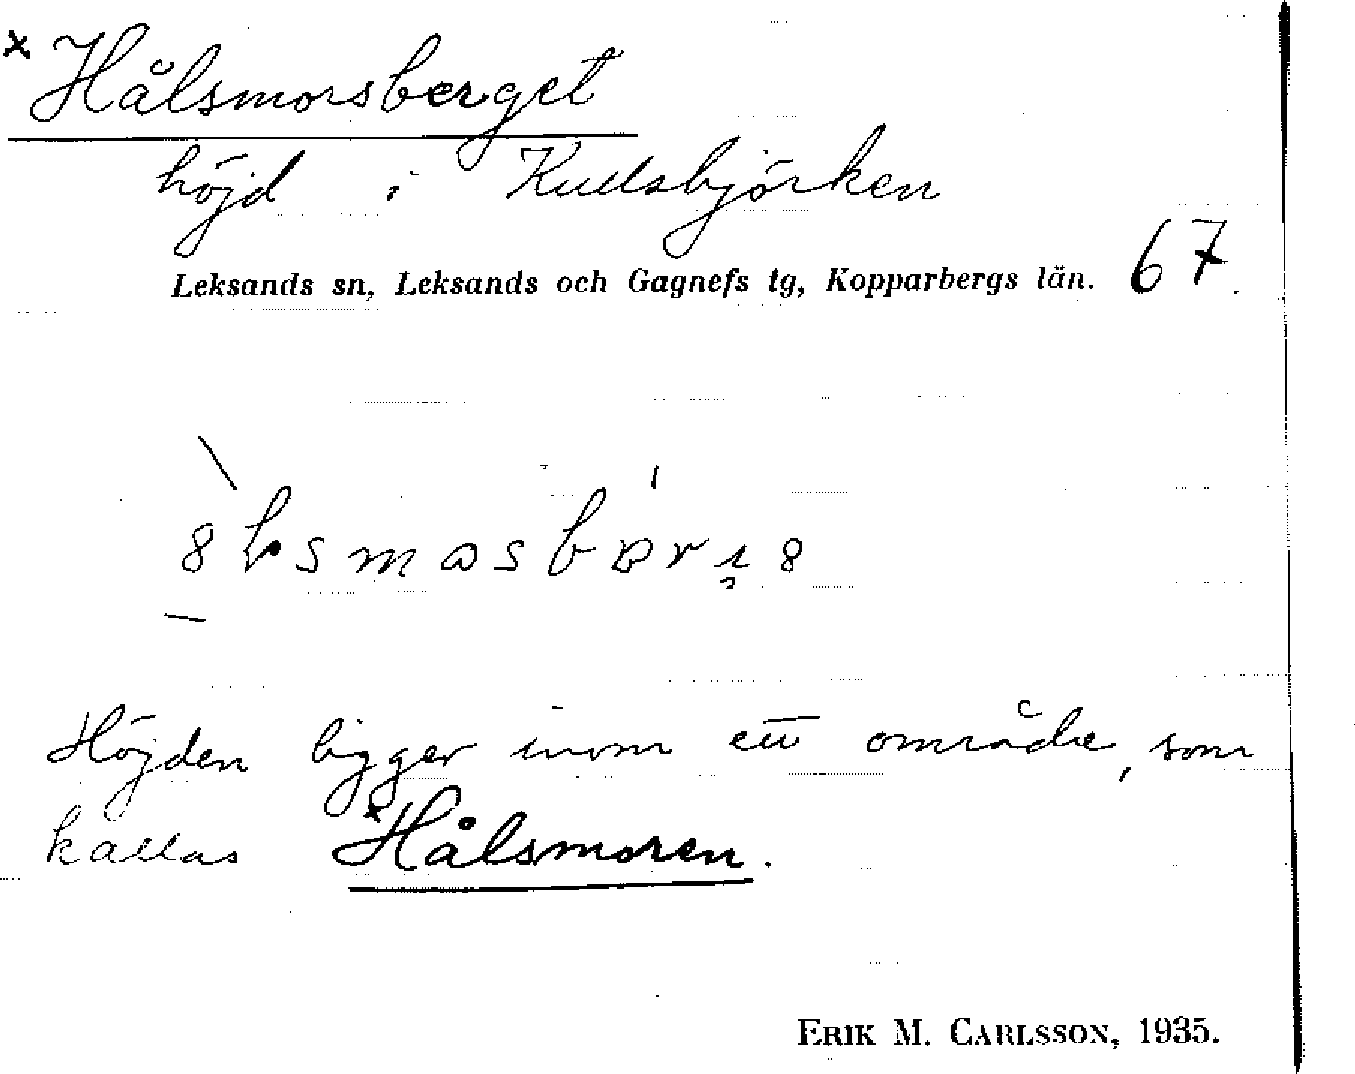 *Hålsmorsberget
höjd i Kullsbjörken
Leksands sn, Leksands och Gagnefs tg, Kopparbergs län. 67
Höjden ligger inom ett område, som
kallas *Hålsmoren.
ERIK M. CARLSSON, 1935.